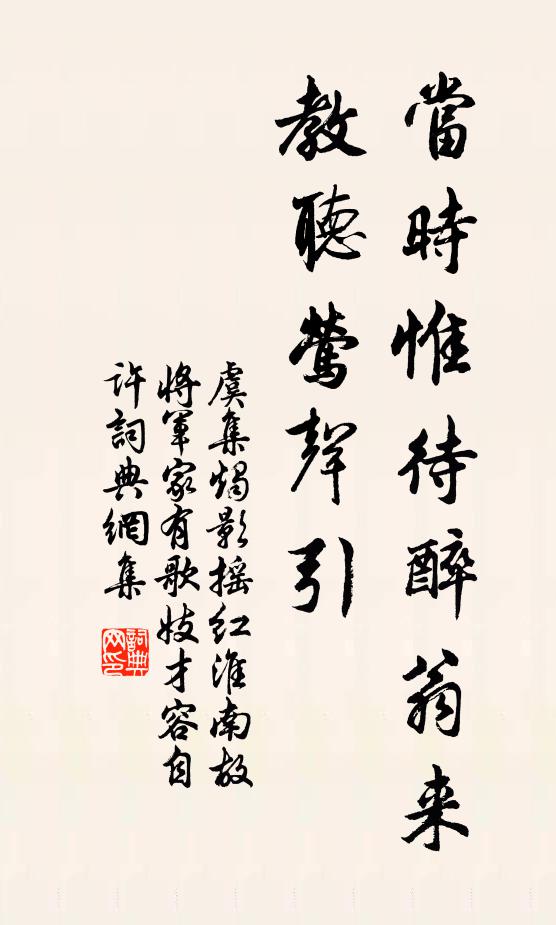 當時惟待醉翁来
教聽鶯聲引
虞集燭影摇红淮南故
將軍家有歌妓才容自
許詞典網集
詞典
网印